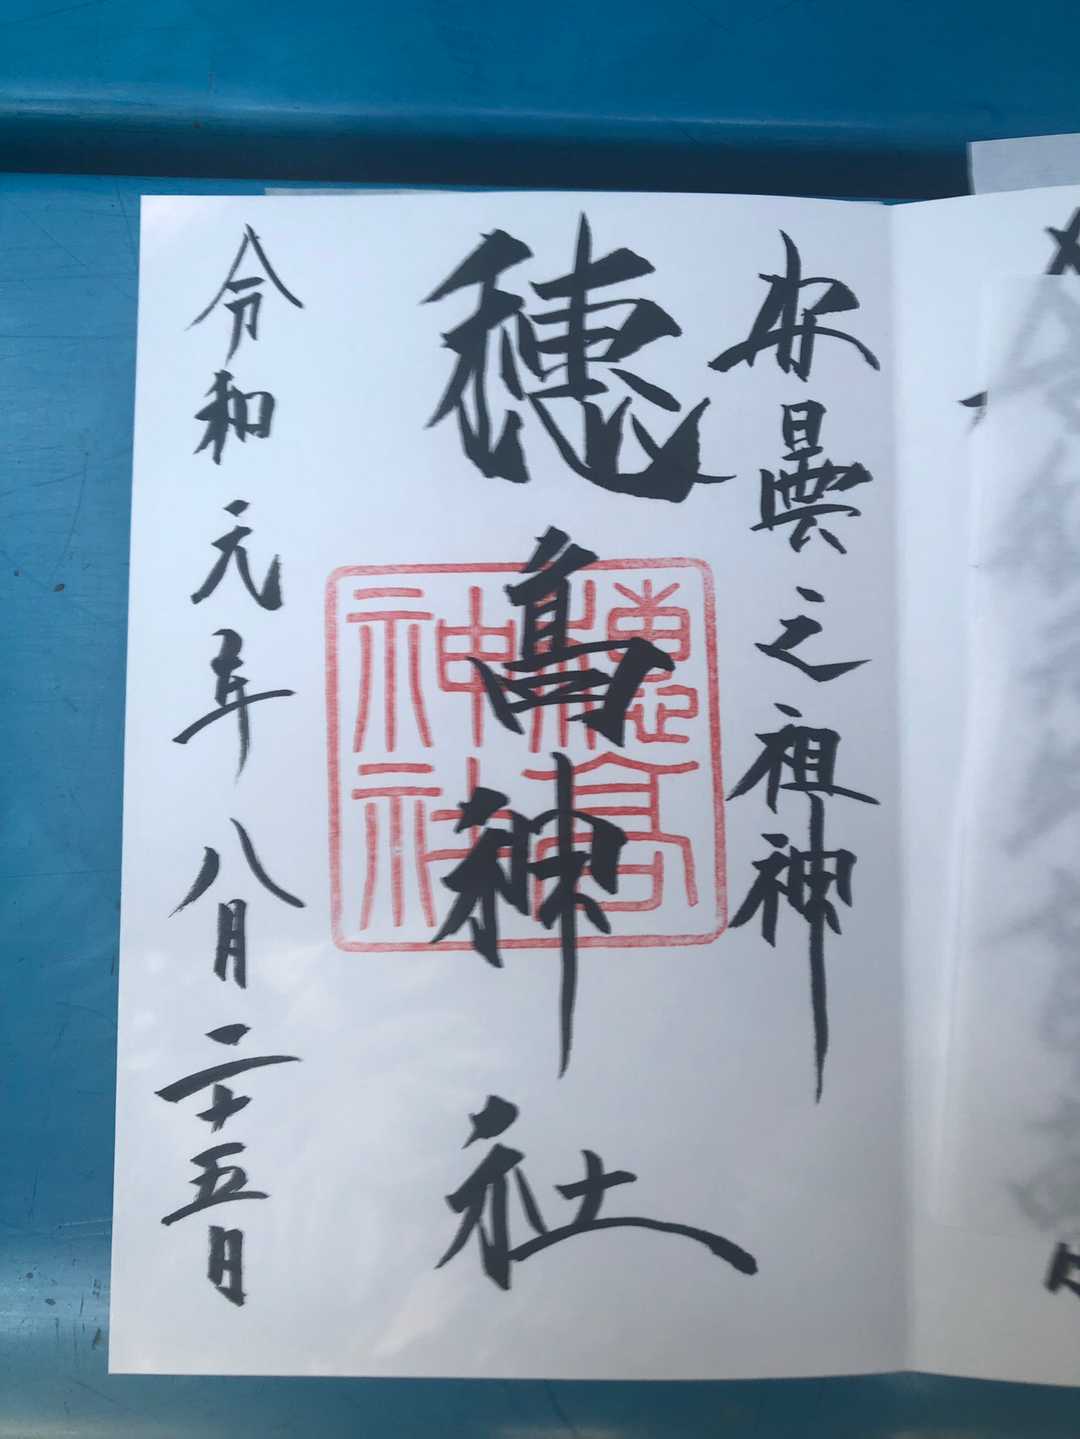 安曇之祖神
穂髙神社
穂高神社
令和元年八月二十五日